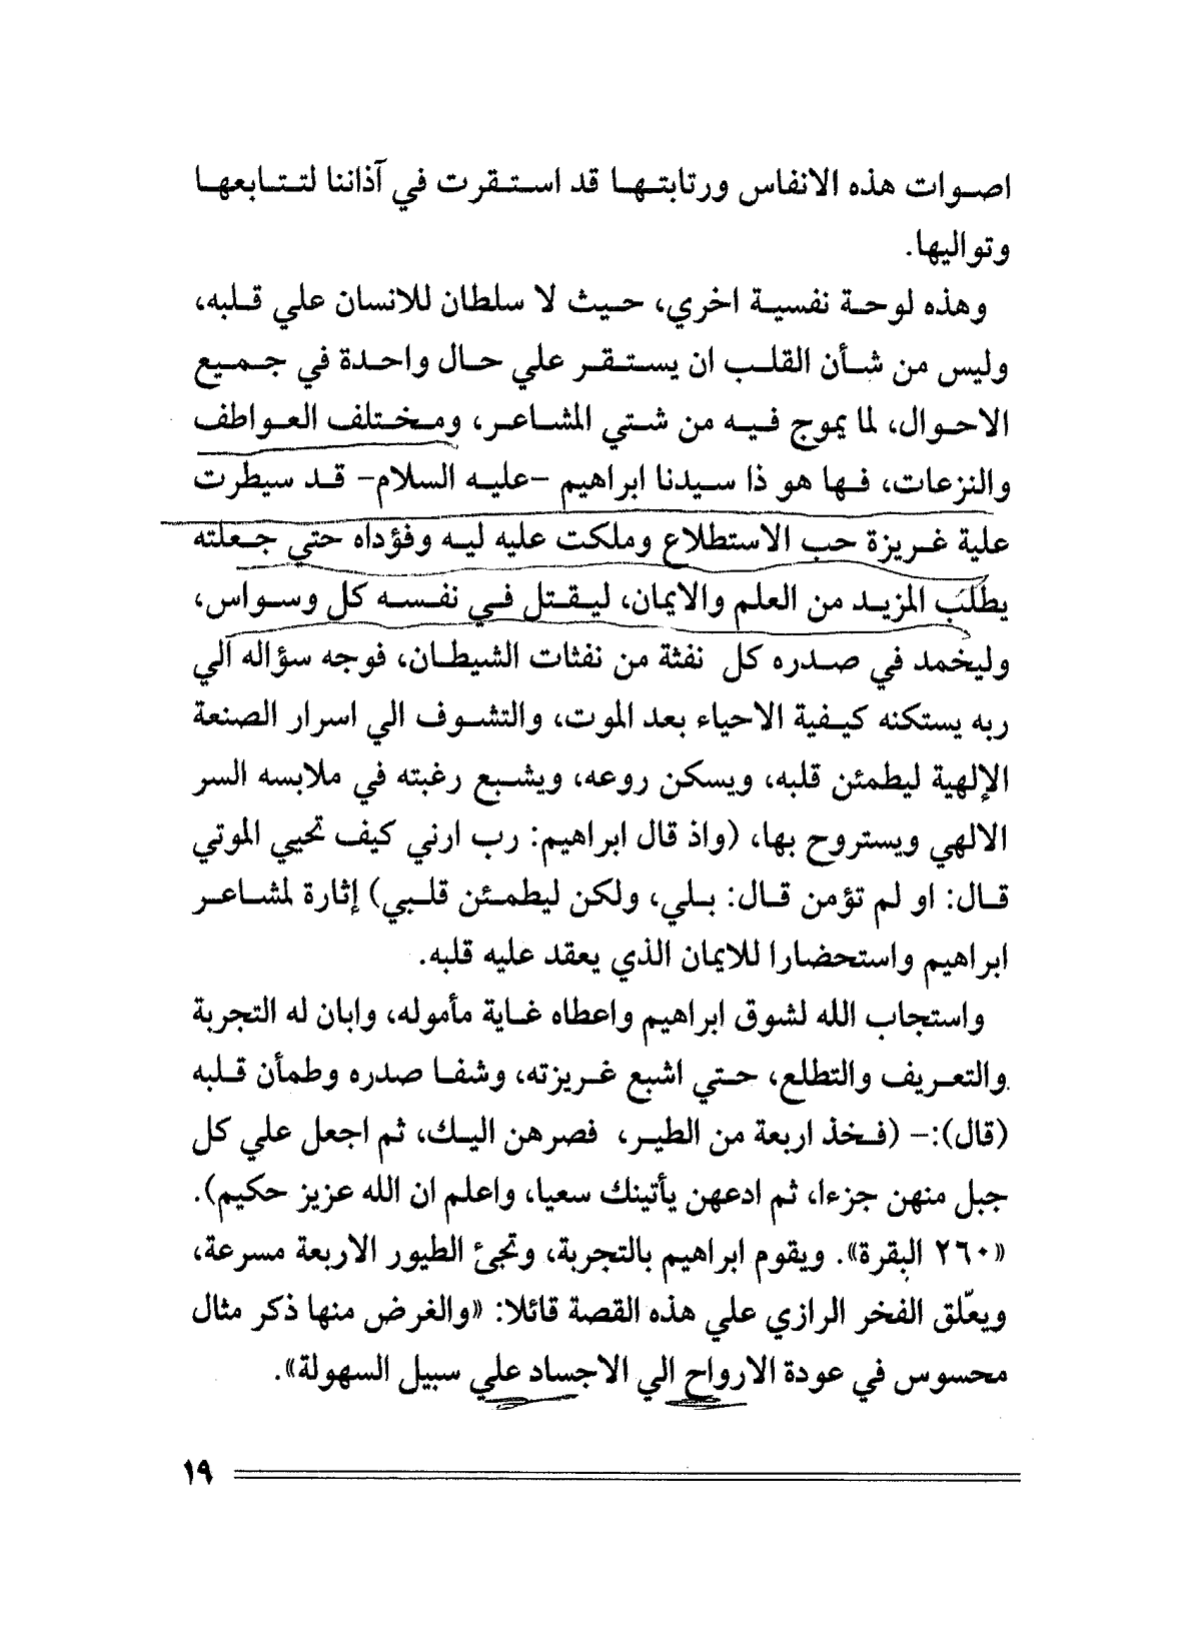 اصوات هذه الانفاس ورتابتها قد استقرت في آذاننا لتتابعها
وتواليها.
وهذه لوحة نفسية اخري، حيث لا سلطان للانسان علي قلبه،
وليس من شأن القلب ان يستقر علي حال واحدة في جميع
الاحوال، لما يموج فيه من شتي المشاعر، ومختلف العواطف
والنزعات، فها هو ذا سيدنا ابراهيم -عليه السلام- قد سيطرت
علية غريزة حب الاستطلاع وملكت عليه ليه وفؤداه حتي جعلته
يطلب المزيد من العلم والايمان، ليقتل في نفسه كل وسواس،
وليخمد في صدره كل نفثة من نفثات الشيطان، فوجه سؤاله الي
ربه يستكنه كيفية الاحياء بعد الموت، والتشوف الي اسرار الصنعة
الإلهية ليطمئن قلبه، ويسكن روعه، ويشبع رغبته في ملابسه السر
الالهي ويستروح بها، (واذ قال ابراهيم: رب ارني كيف تحيي الموتي
قال: او لم تؤمن قال: بلي، ولكن ليطمئن قلبي) إثارة لمشاعر
ابراهيم واستحضارا للايمان الذي يعقد عليه قلبه.
واستجاب الله لشوق ابراهيم واعطاه غاية مأموله، وابان له التجربة
والتعريف والتطلع، حتي اشبع غريزته، وشفا صدره وطمأن قلبه
(قال):- (فخذ اربعة من الطير، فصرهن اليك، ثم اجعل علي كل
جبل منهن جزءا، ثم ادعهن يأتينك سعيا، واعلم ان الله عزيز حكيم).
«٢٦٠ البقرة». ويقوم ابراهيم بالتجربة، وتجئ الطيور الاربعة مسرعة،
ويعلّق الفخر الرازي علي هذه القصة قائلا: «والغرض منها ذكر مثال
محسوس في عودة الارواح الي الاجساد علي سبيل السهولة».
١٩